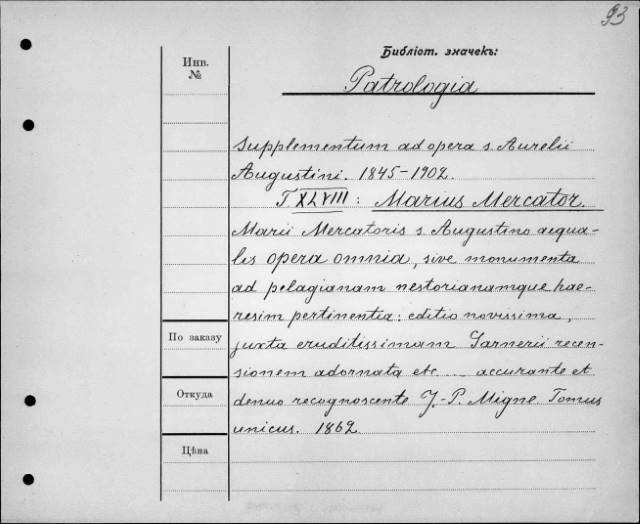 93
Библіот. значекъ:
Инв.
№
Patrologia
Supplementum ad opera s. Aurelii
Augustini. 1845-1902.
T XLVIII: Marius Mercator.
Marii Mercatoris s. Augustino aequa-
lis opera omnia, sive monumenta
ad pelagianam nestorianamque hae-
resim pertinentia: editio novissima,
По заказу
juxta eruditissimam Garnerii recen-
sionem adornata etc.... accurante et
Откуда
denuo recognoscente J.-P. Migne Tomus
unicus. 1862.
Цѣна